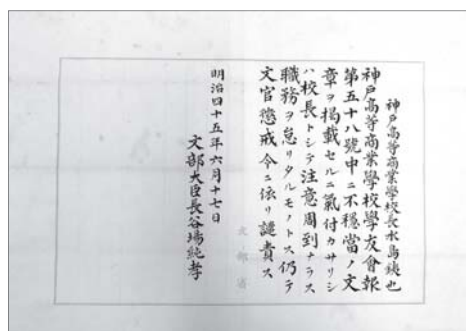 神戸高等商業學校長水島銕也
神戸高等商業學校學友會報
第五十八號中ニ不穏當ノ文
章ヲ掲載セルニ氣付カサリシ
ハ校長トシテ注意周到ナラス
職務ヲ怠リタルモノトス仍テ
文官懲戒令ニ依リ譴責ス
明治四十五年六月十七日
文部大臣長谷場純孝
文部省